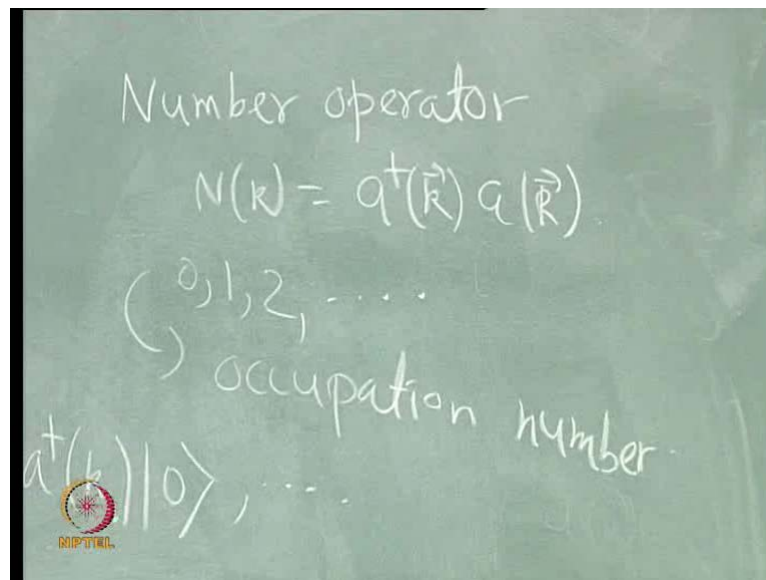 Number operator
N(k) = a†(k⃗) a(k⃗)
0, 1, 2, ....
occupation number
a†(k)|0⟩, ....
NPTEL